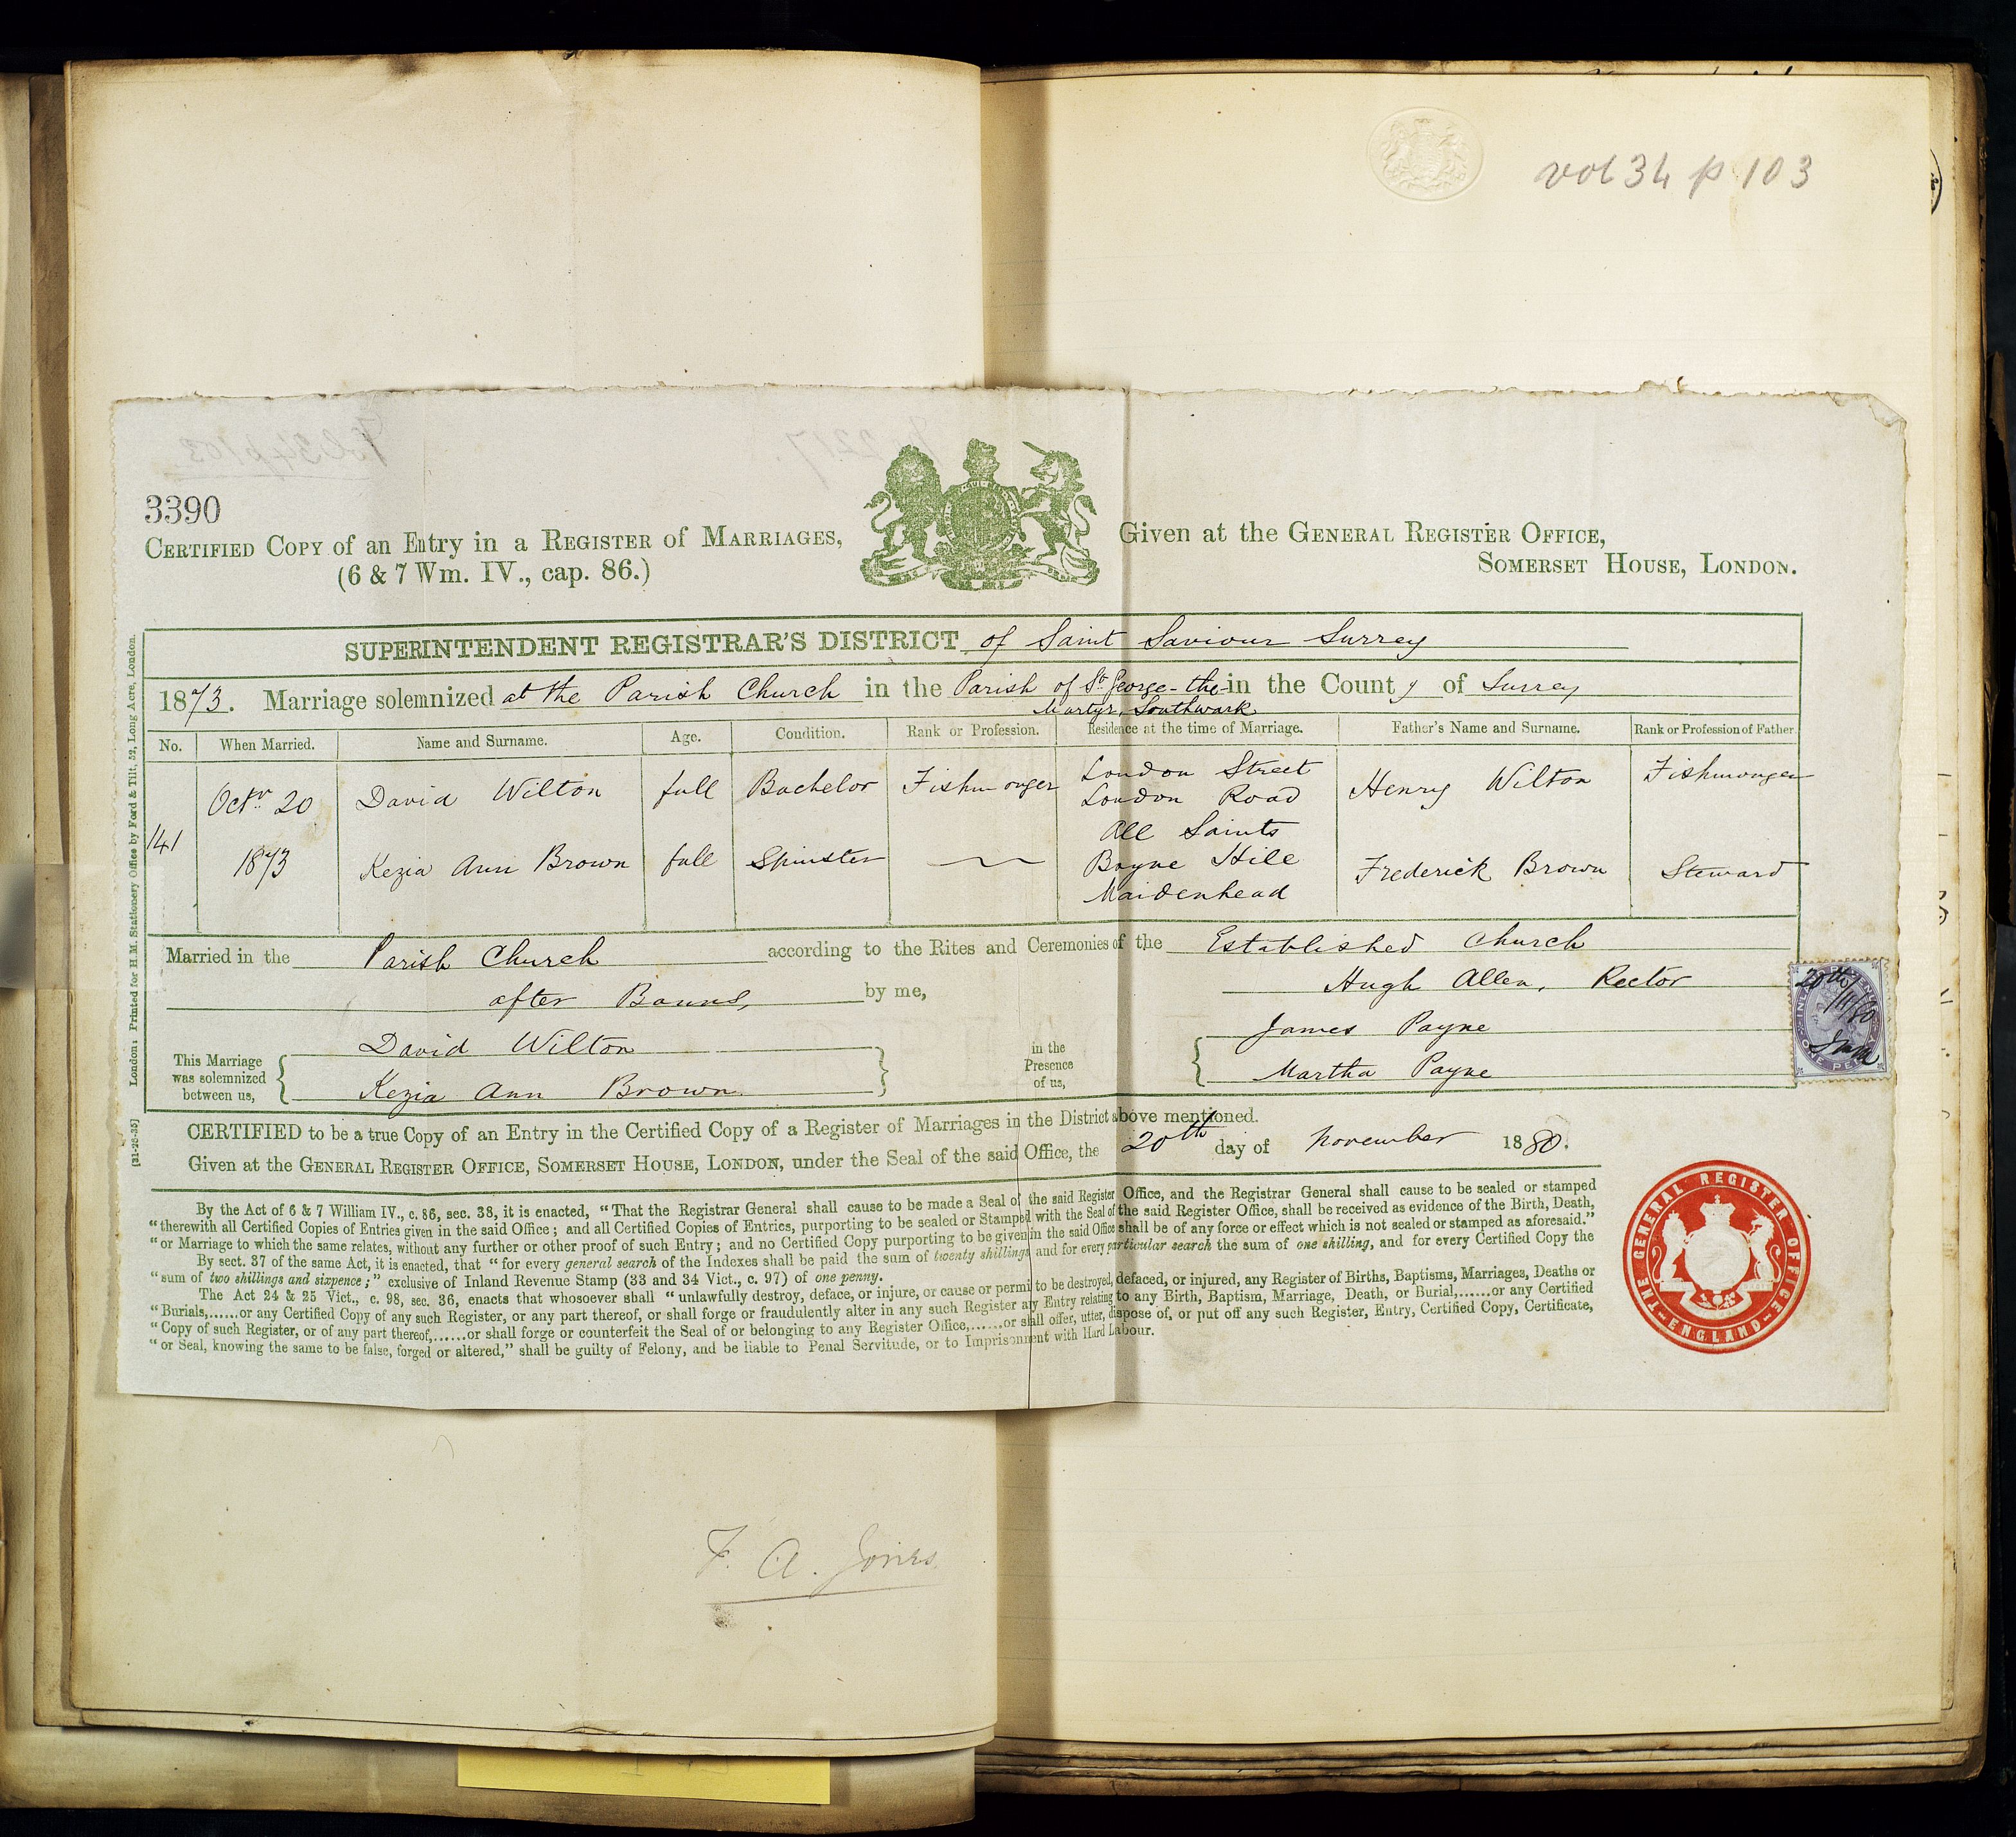 vol 34 p 103
3390
CERTIFIED COPY of an Entry in a REGISTER of MARRIAGES,
(6 & 7 Wm. IV., cap. 86.)
Given at the GENERAL REGISTER OFFICE,
SOMERSET HOUSE, LONDON.
SUPERINTENDENT REGISTRAR'S DISTRICT of Saint Saviour Surrey
1873. Marriage solemnized at the Parish Church in the Parish of St George-the- in the County of Surrey
Martyr, Southwark
No. When Married. Name and Surname. Age. Condition. Rank or Profession. Residence at the time of Marriage. Father's Name and Surname. Rank or Profession of Father.
141
Octr 20 David Wilton full Bachelor Fishmonger London Street London Road Henry Wilton Fishmonger
1873 Kezia Ann Brown full Spinster All Saints Boyne Hill Maidenhead Frederick Brown Steward
Married in the Parish Church according to the Rites and Ceremonies of the Established Church
after Banns, by me, Hugh Allen, Rector
This Marriage was solemnized between us,
David Wilton
Kezia Ann Brown.
in the Presence of us,
James Payne
Martha Payne
20th/11/80
INLAND REVENUE
ONE PENNY
CERTIFIED to be a true Copy of an Entry in the Certified Copy of a Register of Marriages in the District above mentioned.
Given at the GENERAL REGISTER OFFICE, SOMERSET HOUSE, LONDON, under the Seal of the said Office, the 20th day of November 1880.
By the Act of 6 & 7 William IV., c. 86, sec. 38, it is enacted, "That the Registrar General shall cause to be made a Seal of the said Register Office, and the Registrar General shall cause to be sealed or stamped
"therewith all Certified Copies of Entries given in the said Office; and all Certified Copies of Entries, purporting to be sealed or Stamped with the Seal of the said Register Office, shall be received as evidence of the Birth, Death,
"or Marriage to which the same relates, without any further or other proof of such Entry; and no Certified Copy purporting to be given in the said Office shall be of any force or effect which is not sealed or stamped as aforesaid."
By sect. 37 of the same Act, it is enacted, that "for every general search of the Indexes shall be paid the sum of twenty shillings and for every particular search the sum of one shilling, and for every Certified Copy the
"sum of two shillings and sixpence;" exclusive of Inland Revenue Stamp (33 and 34 Vict., c. 97) of one penny.
The Act 24 & 25 Vict., c. 98, sec. 36, enacts that whosoever shall "unlawfully destroy, deface, or injure, or cause or permit to be destroyed, defaced, or injured, any Register of Births, Baptisms, Marriages, Deaths or
"Burials,......or any Certified Copy of any such Register, or any part thereof, or shall forge or fraudulently alter in any such Register any Entry relating to any Birth, Baptism, Marriage, Death, or Burial,......or any Certified
"Copy of such Register, or of any part thereof,......or shall forge or counterfeit the Seal of or belonging to any Register Office,......or shall offer, utter, dispose of, or put off any such Register, Entry, Certified Copy, Certificate,
"or Seal, knowing the same to be false, forged or altered," shall be guilty of Felony, and be liable to Penal Servitude, or to Imprisonment with Hard Labour.
THE GENERAL REGISTER OFFICE
ENGLAND
[21-25-35] London: Printed for H.M. Stationery Office by Ford & Tilt, 52, Long Acre, London.
F. A. Jones